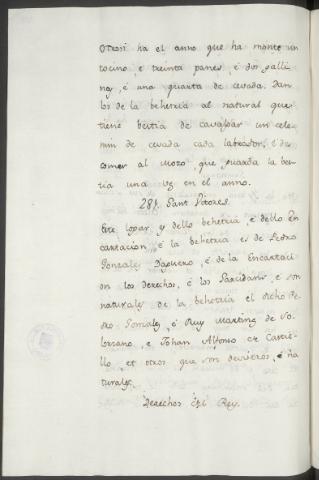 Otrosi ha el anno que ha monte un
tocino, e treinta panes, é dos galli
nas, é una quarta de cevada. Dan
los de la behetria al natural que
tiene bestia de cavalgar un cele
min de cevada cada labrador, é de
comer al mozo, que guarda la bes
tia una vez en el anno.
281. Sant Vitores.
Este logar, y dello behetria, e dello En
cartacion, é la behetria es de Pedro
Gonzalez Daguero, é de la Encartaci
on los derechos, é los
naturales de la behetria el dicho Pe
dro Gonzalez, é Ruy Martinez de So
lorzano, e Johan Alfonso de Castie
llo, et otros que son deviseros, é na
turales.
Derechos del Rey.